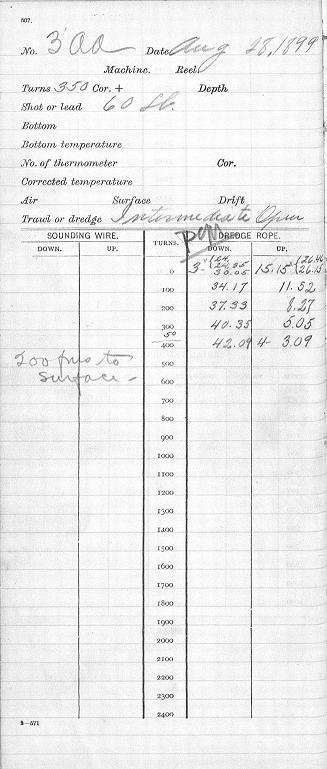 507.
No. 300 Date Aug 28, 1899
Machine. Reel.
Turns 350 Cor. + Depth
Shot or lead 60 lb.
Bottom
Bottom temperature
No. of thermometer Cor.
Corrected temperature
Air Surface Drift
Trawl or dredge Intermediate Open
SOUNDING WIRE. TURNS. DREDGE ROPE.
DOWN. UP. DOWN. UP.
0 3- 30.05 15.15 26.15
100 34.17 11.52
200 37.33 8.27
300 40.35 5.05
50
400 42.09 4- 3.09
200 fms to
surface-
500
600
700
800
900
1000
1100
1200
1300
1400
1500
1600
1700
1800
1900
2000
2100
2200
2300
2400
2-571